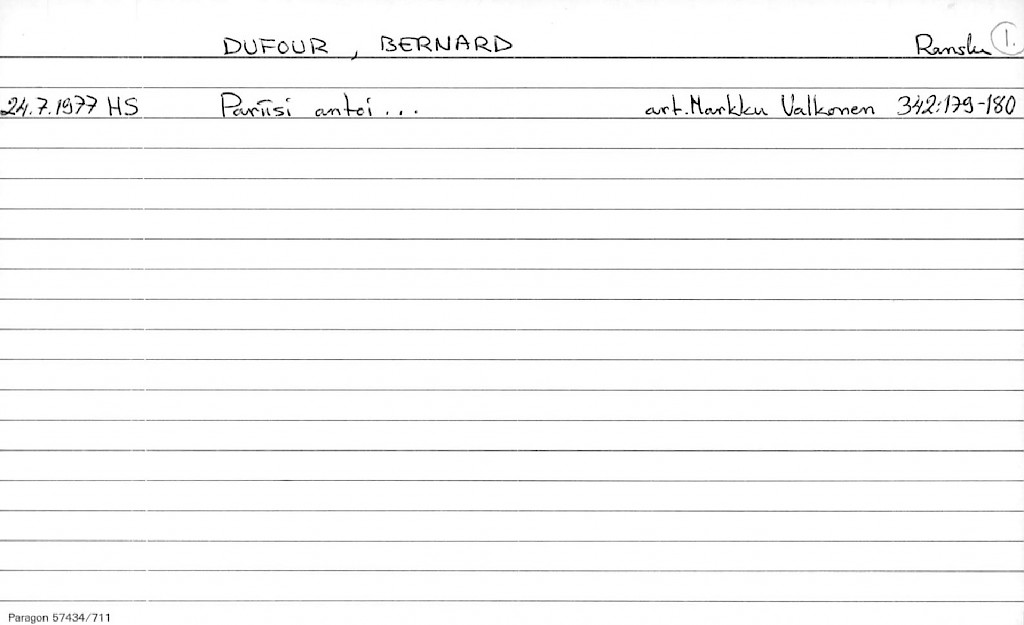 DUFOUR, BERNARD Ranska 1.
24.7.1977 HS Pariisi antoi... art. Markku Valkonen 342:179-180
Paragon 57434/711